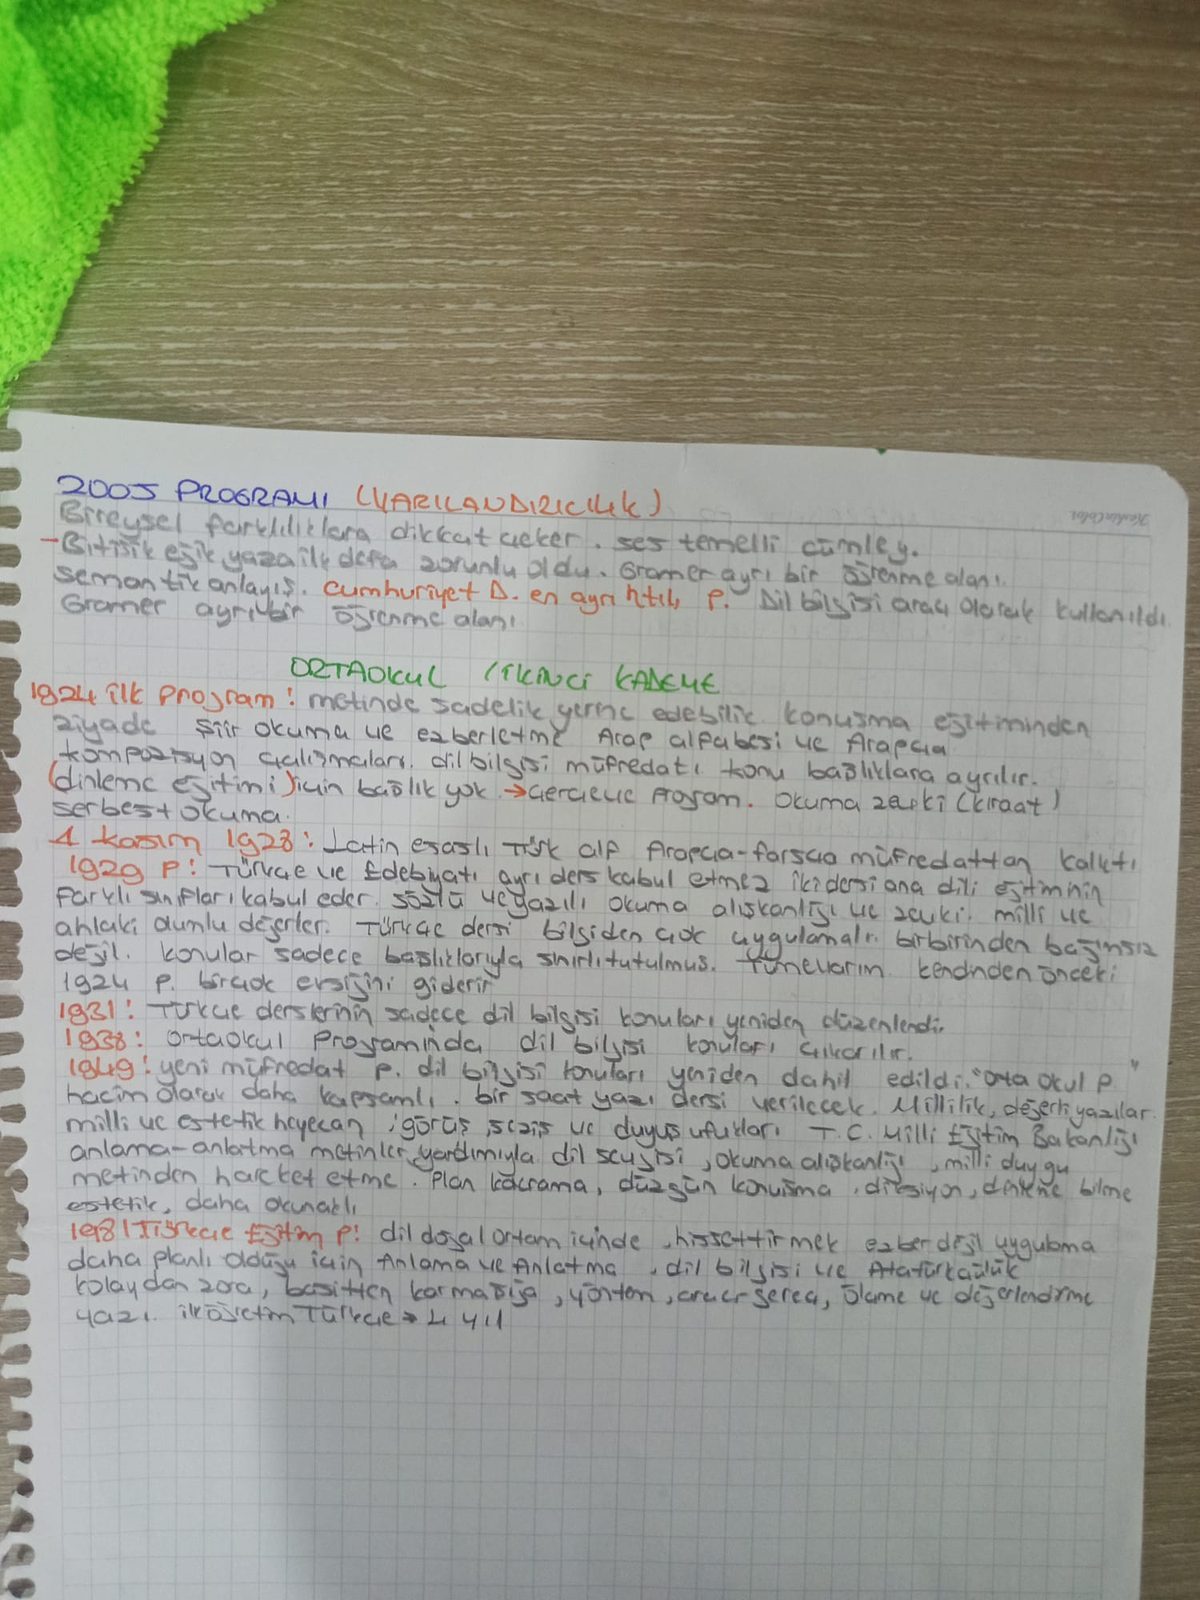 2005 PROGRAMI (YAPILANDIRICILIK)
Bireysel farklılıklara dikkat çeker. ses temelli cümle y.
-Bitişik eğik yazı ilk defa zorunlu oldu. Gramer ayrı bir öğrenme alanı.
semantik anlayış. Cumhuriyet D. en ayrıntılı P. Dil bilgisi aracı olarak kullanıldı
Gramer ayrı bir öğrenme alanı
ORTAOKUL / İKİNCİ KADEME
1924 ilk Program: metinde sadelik yerine edebilik konuşma eğitiminden
ziyade şiir okuma ve ezberletme Arap alfabesi ve Arapça
kompozisyon çalışmaları. dil bilgisi müfredatı konu başlıklara ayrılır.
(dinleme eğitimi) için başlık yok → çerçeve Program. Okuma zevki (kıraat)
serbest okuma.
1 Kasım 1928: Latin esaslı Türk alf Arapça-farsça müfredattan kalktı
1929 P: Türkçe ve Edebiyatı ayrı ders kabul etmez iki dersi ana dili eğitiminin
farklı sınıfları kabul eder. sözlü ve yazılı okuma alışkanlığı ve zevki. milli ve
ahlaki olumlu değerler. Türkçe dersi bilgiden çok uygulamalı. birbirinden bağımsız
değil. konular sadece başlıklarıyla sınırlı tutulmuş. Tümevarım kendinden önceki
1924 P. birçok eksiğini giderir
1931: Türkçe derslerinin sadece dil bilgisi konuları yeniden düzenlendi.
1938: Ortaokul Programında dil bilgisi konuları çıkarılır.
1949: yeni müfredat P. dil bilgisi konuları yeniden dahil edildi. "Orta Okul P"
hacim olarak daha kapsamlı. bir saat yazı dersi verilecek. Millilik, değerli yazılar
milli ve estetik heyecan, görüş, seziş ve duyuş ufukları T.C. Milli Eğitim Bakanlığı
anlama-anlatma metinler yardımıyla dil sevgisi, okuma alışkanlığı, milli duygu
metinden hareket etme. Plan, düzgün konuşma, diksiyon, dinleme bilme
estetik, daha okunaklı
1981 Türkçe Eğitim P: dil doğal ortam içinde, hissettirmek ezber değil uygulama
daha planlı olduğu için Anlama ve Anlatma, dil bilgisi ve Atatürkçülük
kolaydan zora, basitten karmaşığa, yöntem, araç gereç, Ölçme ve değerlendirme
yazı. ilköğretim Türkçe → 4 yıl